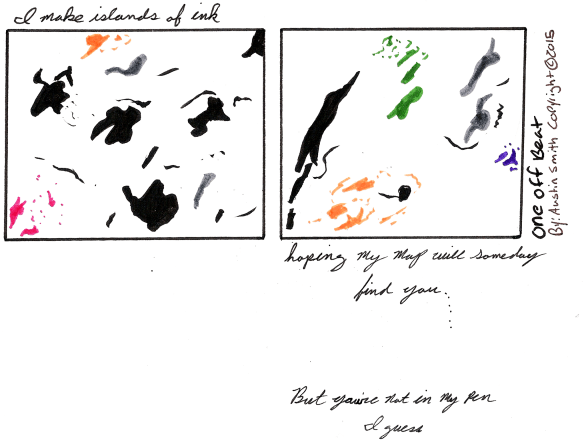 I make islands of ink
hoping my map will someday
find you.....
But you're not in my pen
I guess
One Off Beat
By: Austin Smith Copyright ©2015